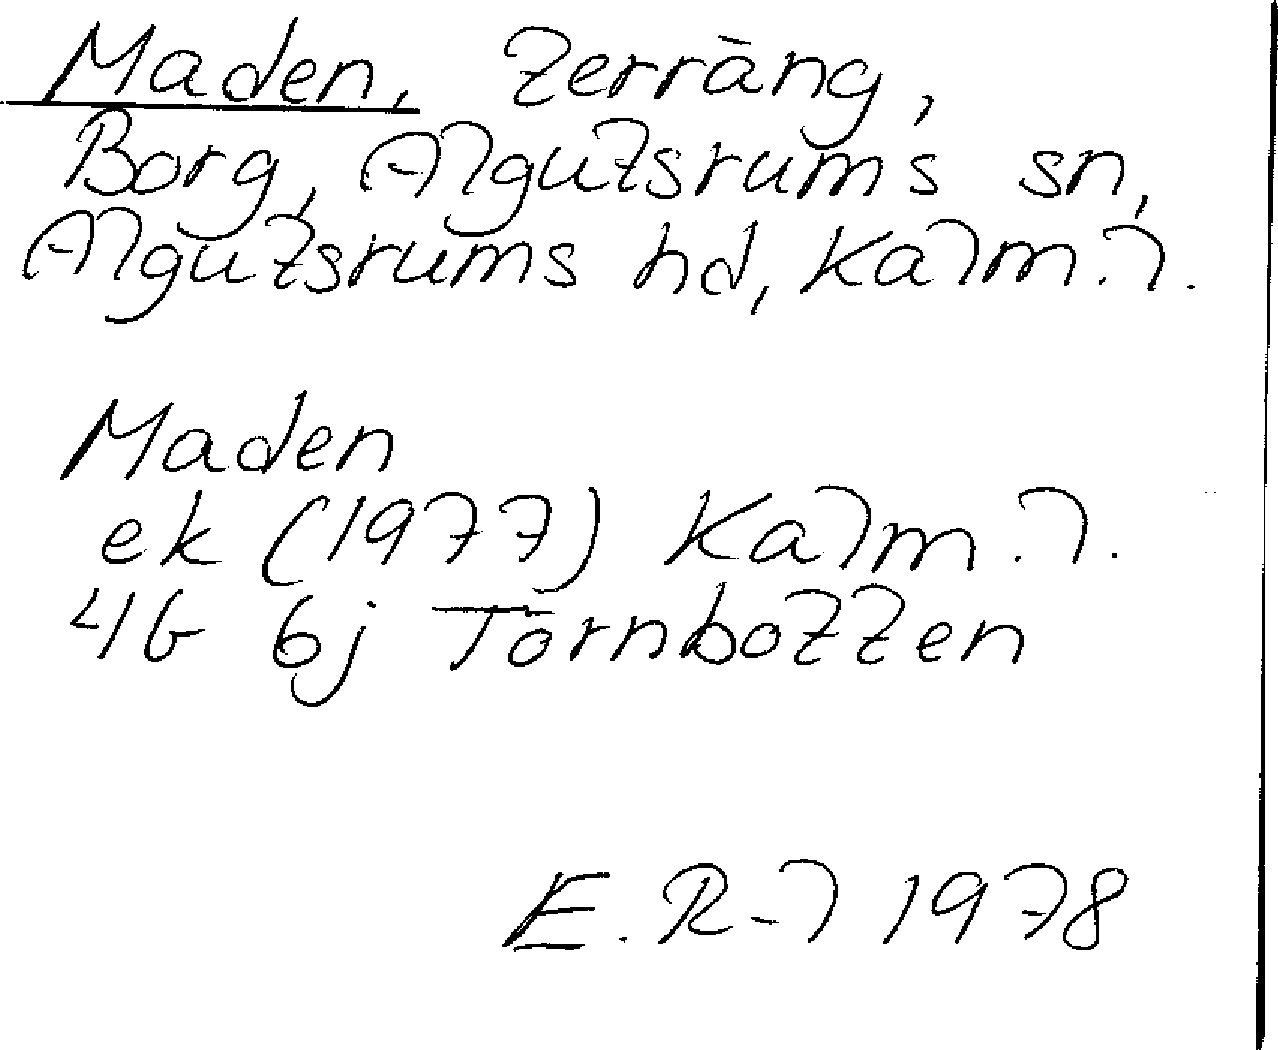 Maden, terräng,
Borg, Algutsrums sn,
Algutsrums hd, Kalm. l.
Maden
ek (1977) Kalm. l.
4G 6j Törnbotten
E. R-l 1978